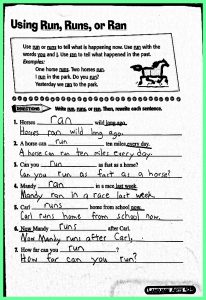 Using Run, Runs, or Ran
Use run or runs to tell what is happening now. Use run with the
words you and I. Use ran to tell what happened in the past.
Examples:
One horse runs. Two horses run.
I run in the park. Do you run?
Yesterday we ran to the park.
DIRECTIONS Write run, runs, or ran. Then, rewrite each sentence.
1. Horses ran wild long ago.
Horses ran wild long ago.
2. A horse can run ten miles every day.
A horse can run ten miles every day.
3. Can you run as fast as a horse?
Can you run as fast as a horse?
4. Mandy ran in a race last week.
Mandy ran in a race last week.
5. Carl runs home from school now.
Carl runs home from school now.
6. Now Mandy runs after Carl.
Now Mandy runs after Carl.
7. How far can you run?
How far can you run?
Language Arts